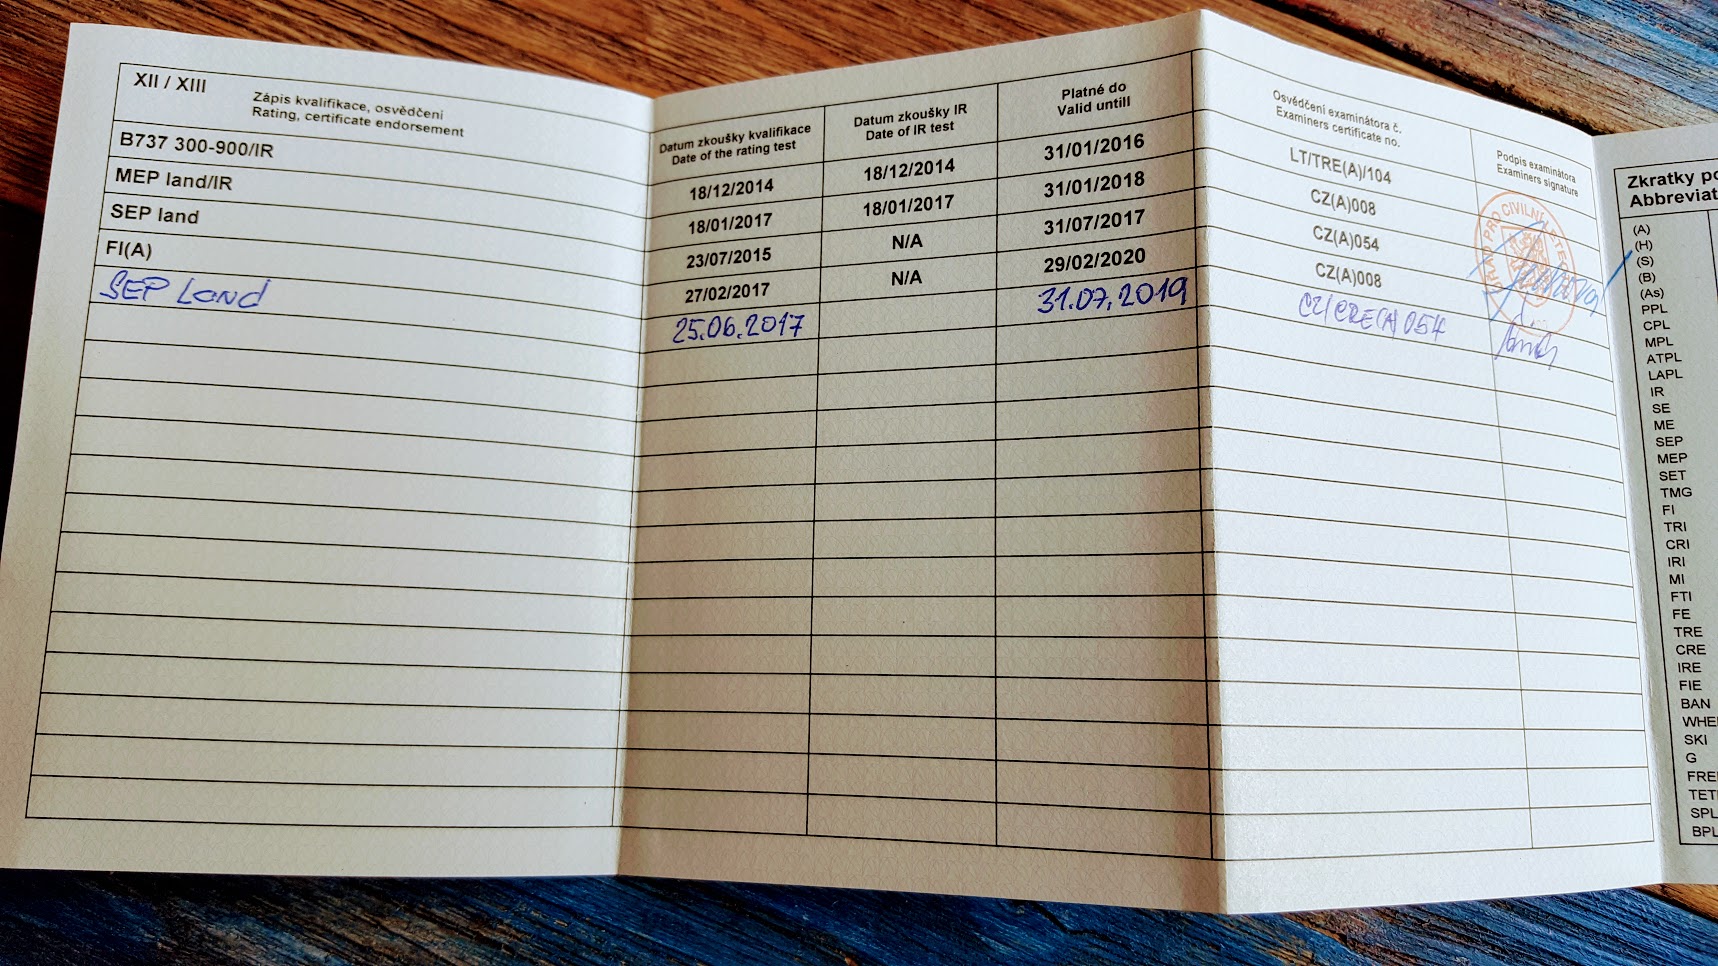 XII / XIII
Zápis kvalifikace, osvědčení
Rating, certificate endorsement
Datum zkoušky kvalifikace
Date of the rating test
Datum zkoušky IR
Date of IR test
Platné do
Valid untill
Osvědčení examinátora č.
Examiners certificate no.
Podpis examinátora
Examiners signature
B737 300-900/IR 18/12/2014 18/12/2014 31/01/2016 LT/TRE(A)/104
MEP land/IR 18/01/2017 18/01/2017 31/01/2018 CZ(A)008
SEP land 23/07/2015 N/A 31/07/2017 CZ(A)054
FI(A) 27/02/2017 N/A 29/02/2020 CZ(A)008
SEP Land 25.06.2017 31.07.2019 CZ/CRE(A)054
ÚŘAD PRO CIVILNÍ
Zkratky
Abbreviat
(A)
(H)
(S)
(B)
(As)
PPL
CPL
MPL
ATPL
LAPL
IR
SE
ME
SEP
MEP
SET
TMG
FI
TRI
CRI
IRI
MI
FTI
FE
TRE
CRE
IRE
FIE
BAN
WHE
SKI
G
FRE
TET
SPL
BPL